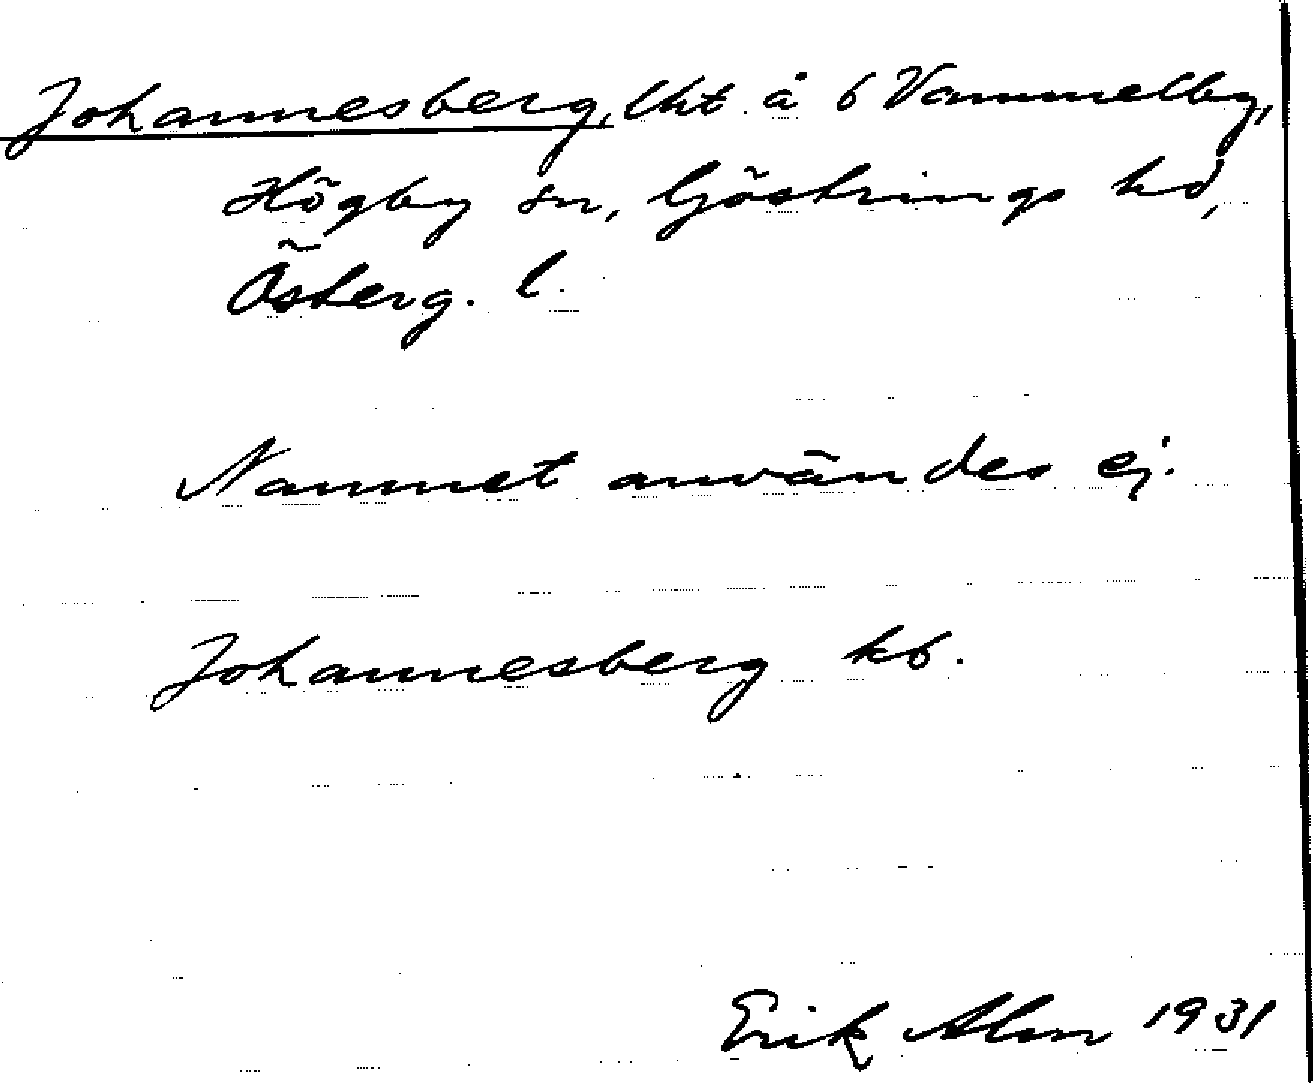 Johannesberg, lht å 6 Vammelby,
Högby sn, Göstrings hd,
Österg. l.
Namnet användes ej.
Johannesberg kb.
Erik Alm 1931